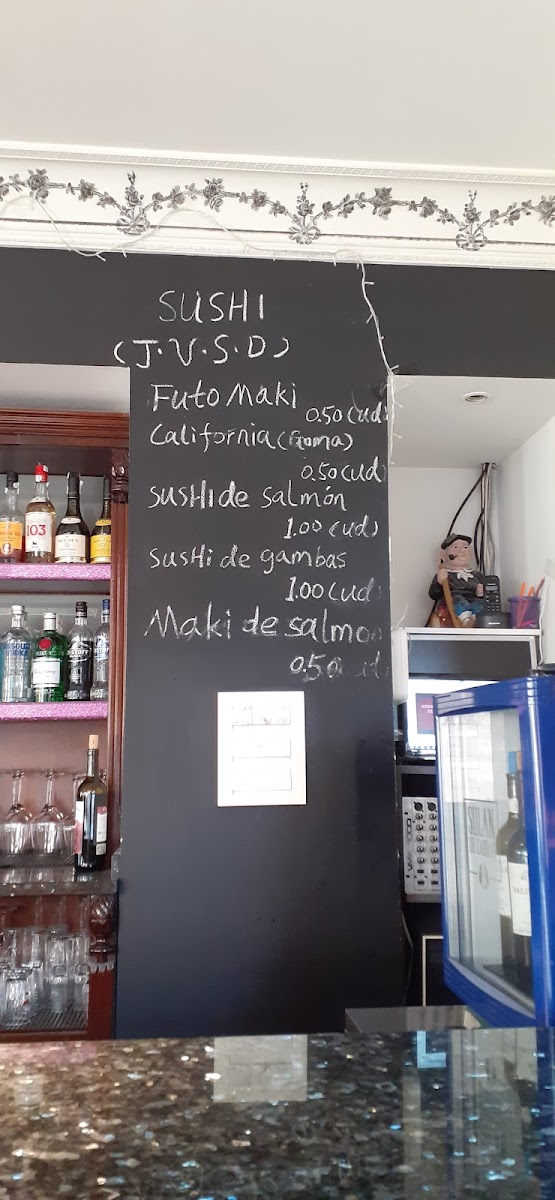 SUSHI
(J.V.S.D)
Futo Maki
0.50 (ud)
California (Goma)
0.50 (ud)
SUSHI de salmón
1.00 (ud)
SUSHI de gambas
1.00 (ud)
Maki de salmon
0.50 ud
103